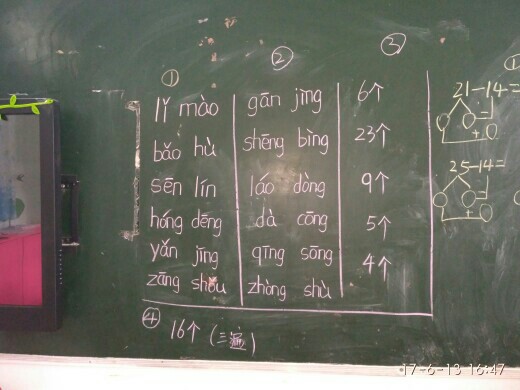 ① ② ③
lǐ mào gān jìng 6个
bǎo hù shēng bìng 23个
sēn lín láo dòng 9个
hóng dēng dà cōng 5个
yǎn jīng qīng sōng 4个
zāng shǒu zhòng shù
④ 16个 (三遍)
①
21-14=
+
25-14=
+
17-6-13 16:47